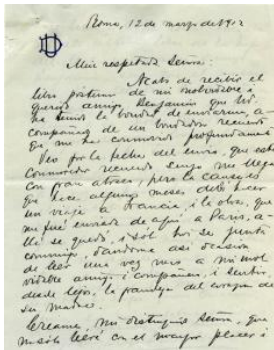 Roma, 12 de marzo de 1912
Muy respetada Señora:
Acabo de recibir el
libro póstumo de mi inolvidable i
querido amigo, Benjamin que Ud.
ha tenido la bondad de enviarme, a-
compañado de un bondadoso recuerdo
que me ha conmovido profundamente.
Veo por la fecha del envío, que este
conmovedor recuerdo suyo me llega
con gran atraso, pero la causa es
que hace algunos meses debí hacer
un viaje a Francia, i la obra, que
me fué enviada de aquí a Paris, a-
llí se quedó, i sólo hoi se junta
conmigo, dándome así ocasión
de leer una vez mas a mi inol
vidable amigo i compañero, i sentir
desde lejos, la del corazon de
su madre.
Créame, mi distinguida Señora, que
su libro leeré con el mayor placer i